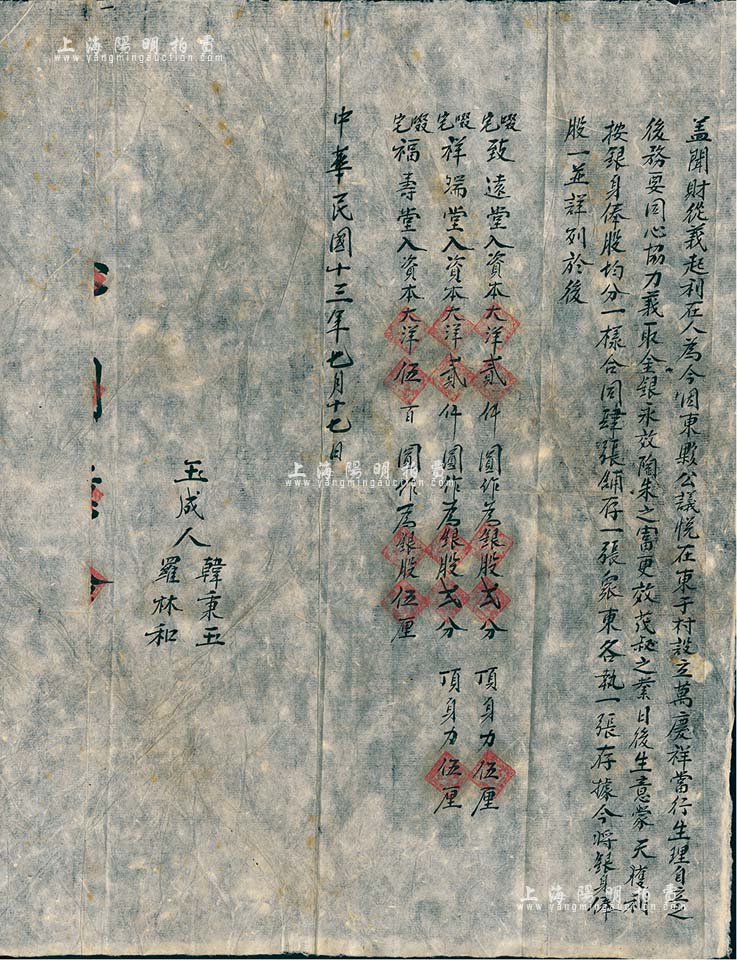 蓋聞財從義起利在人為今因東夥公議悅在東于村設立萬慶祥當行生理自立之
後務要同心協力義取金銀永效陶朱之富更效茂叔之業日後生意蒙天獲利
按銀身俸股均分一樣合同肆張鋪存一張衆東各執一張存據今將銀身俸
股一並詳列於後
致遠堂入資本大洋貳仟圓作為銀股弍分 頂身力伍厘
祥瑞堂入資本大洋貳仟圓作為銀股弍分 頂身力伍厘
福壽堂入資本大洋伍百圓作為銀股伍厘
中華民國十三年七月十七日
玉成人 韓秉玉
羅林和
上海陽明拍賣
www.yangmingauction.com
上海陽明拍賣
www.yangmingauction.com
上海陽明拍賣
www.yangmingauction.com